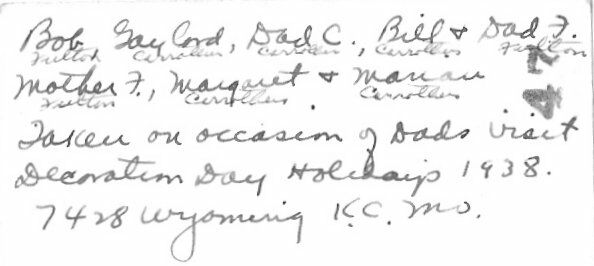 Bob, Gaylord, Dad C., Bill & Dad F.
Fulton Carrothers Carrothers Carrothers Fulton
Mother F., Margaret & Marian
Fulton Carrothers Carrothers
47
Taken on occasion of Dads visit
Decoration Day Holidays 1938.
7428 Wyoming K.C. Mo.